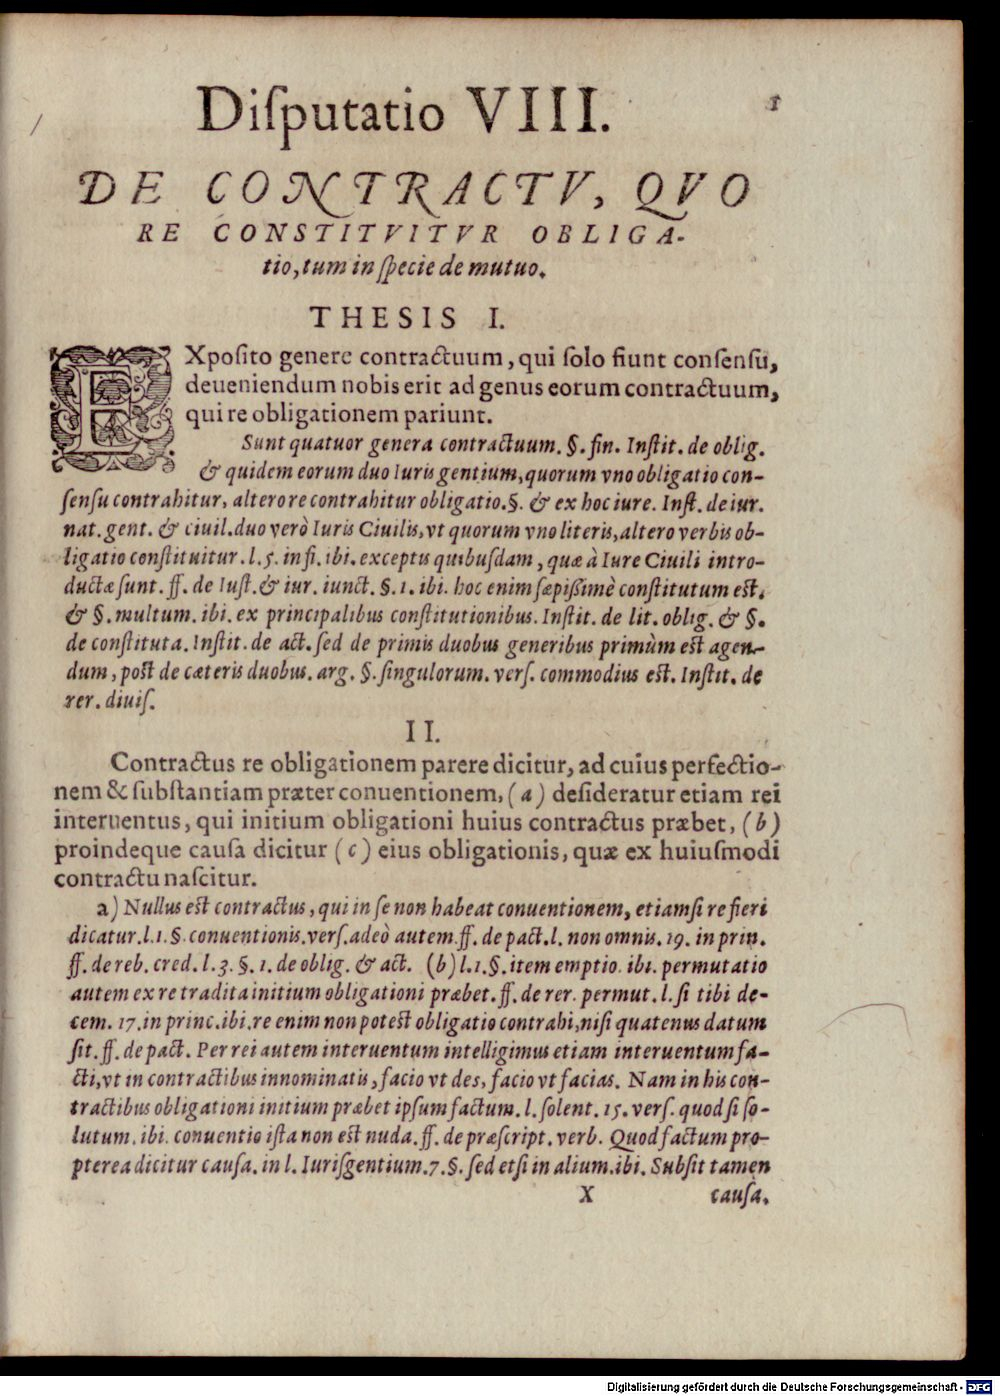 1
Diſputatio VIII.
DE CONTRACTV, QVO
RE CONSTITVITVR OBLIGA-
tio, tum in ſpecie de mutuo.
THESIS I.
EXpoſito genere contractuum, qui ſolo fiunt conſenſu,
deueniendum nobis erit ad genus eorum contractuum,
qui re obligationem pariunt.
Sunt quatuor genera contractuum. §. fin. Inſtit. de oblig.
& quidem eorum duo Iuris gentium, quorum vno obligatio con-
ſenſu contrahitur, altero re contrahitur obligatio. §. & ex hoc iure. Inſt. de iur.
nat. gent. & ciuil. duo verò Iuris Ciuilis, vt quorum vno literis, altero verbis ob-
ligatio conſtituitur. l. 5. in fi. ibi. exceptis quibuſdam, quæ à Iure Ciuili intro-
ductæ ſunt. ff. de Iuſt. & iur. iunct. §. 1. ibi. hoc enim ſæpißimè conſtitutum eſt.
& §. multum. ibi. ex principalibus conſtitutionibus. Inſtit. de lit. oblig. & §.
de conſtituta. Inſtit. de act. ſed de primis duobus generibus primùm eſt agen-
dum, poſt de cæteris duobus. arg. §. ſingulorum. verſ. commodius eſt. Inſtit. de
rer. diuiſ.
II.
Contractus re obligationem parere dicitur, ad cuius perfectio-
nem & ſubſtantiam præter conuentionem, (a) deſideratur etiam rei
interuentus, qui initium obligationi huius contractus præbet, (b)
proindeque cauſa dicitur (c) eius obligationis, quæ ex huiuſmodi
contractu naſcitur.
a) Nullus eſt contractus, qui in ſe non habeat conuentionem, etiamſi re fieri
dicatur. l. 1. §. conuentionis. verſ. adeò autem. ff. de pact. l. non omnis. 19. in prin.
ff. de reb. cred. l. 3. §. 1. de oblig. & act. (b) l. 1. §. item emptio. ibi. permutatio
autem ex re tradita initium obligationi præbet. ff. de rer. permut. l. ſi tibi de-
cem. 17. in princ. ibi. re enim non poteſt obligatio contrahi, niſi quatenus datum
ſit. ff. de pact. Per rei autem interuentum intelligimus etiam interuentum fa-
cti, vt in contractibus innominatis, facio vt des, facio vt facias. Nam in his con-
tractibus obligationi initium præbet ipſum factum. l. ſolent. 15. verſ. quod ſi ſo-
lutum. ibi. conuentio iſta non eſt nuda. ff. de præſcript. verb. Quod factum pro-
pterea dicitur cauſa. in l. Iuriſgentium. 7. §. ſed etſi in alium. ibi. Subſit tamen
X cauſa.
Digitalisierung gefördert durch die Deutsche Forschungsgemeinschaft - DFG